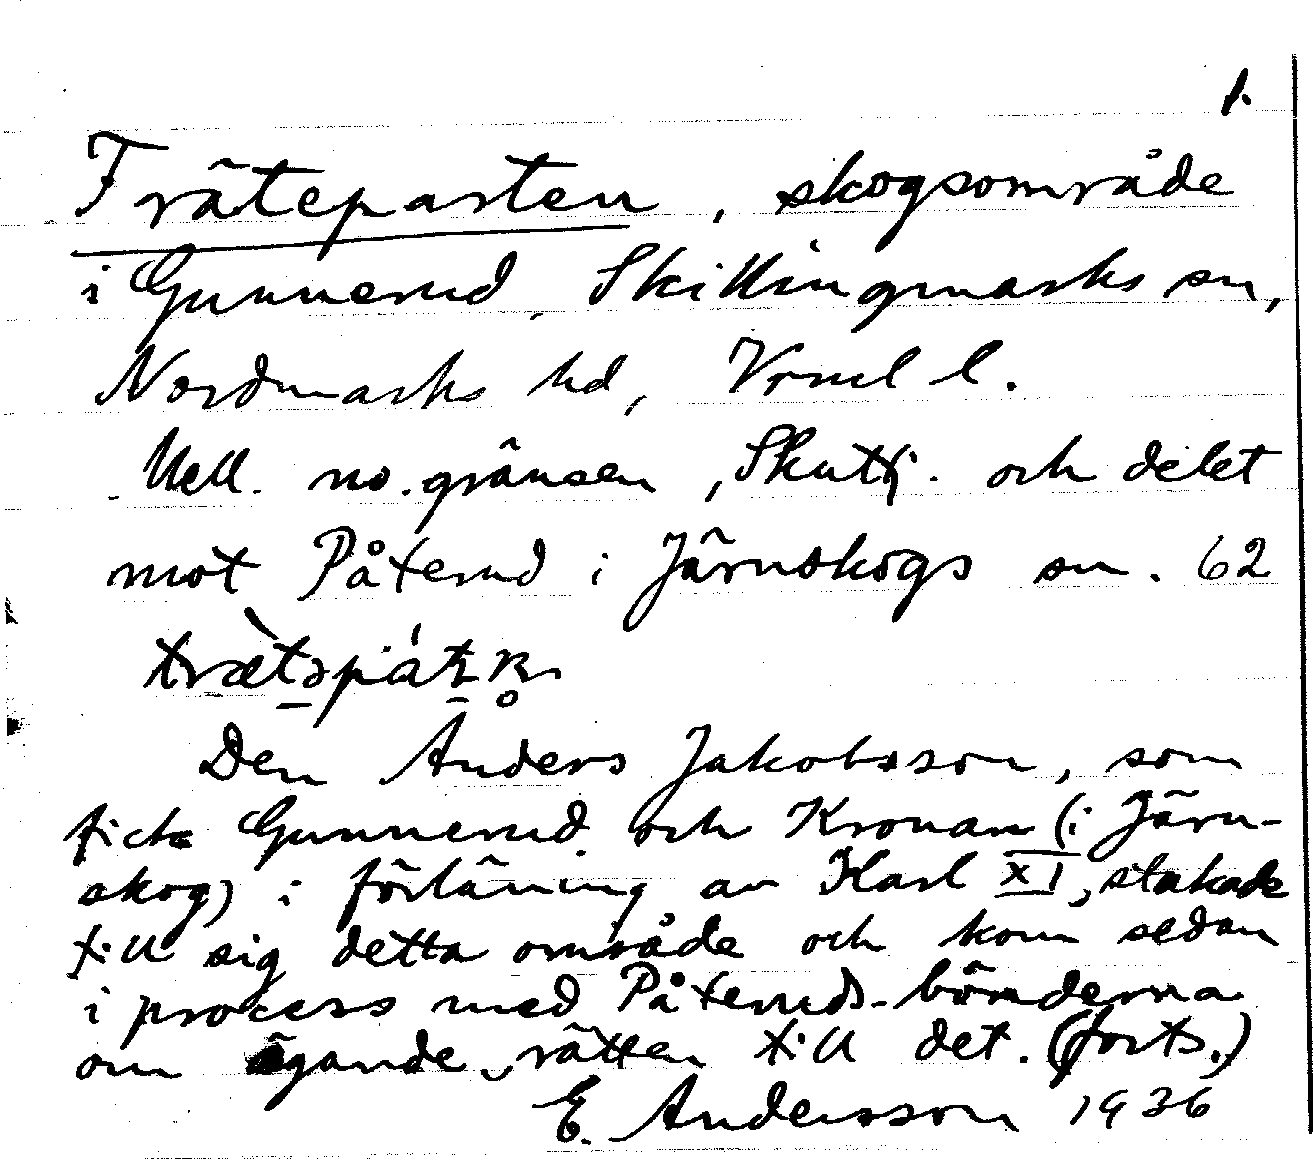 1.
Träteparten, skogsområde
i Gunnerud, Skillingmarks sn,
Nordmarks hd, Vrml l.
Mell. no. gränsen, Skuttj. och delet
mot Påterud i Järnskogs sn. 62
Den Anders Jakobsson, som
fick Gunnerud och Kronan (i Järn-
skog) i förläning av Karl XI, stakade
till sig detta område och kom sedan
i process med Påteruds-bönderna
om äganderätten till det. (forts.)
E. Andersson 1936